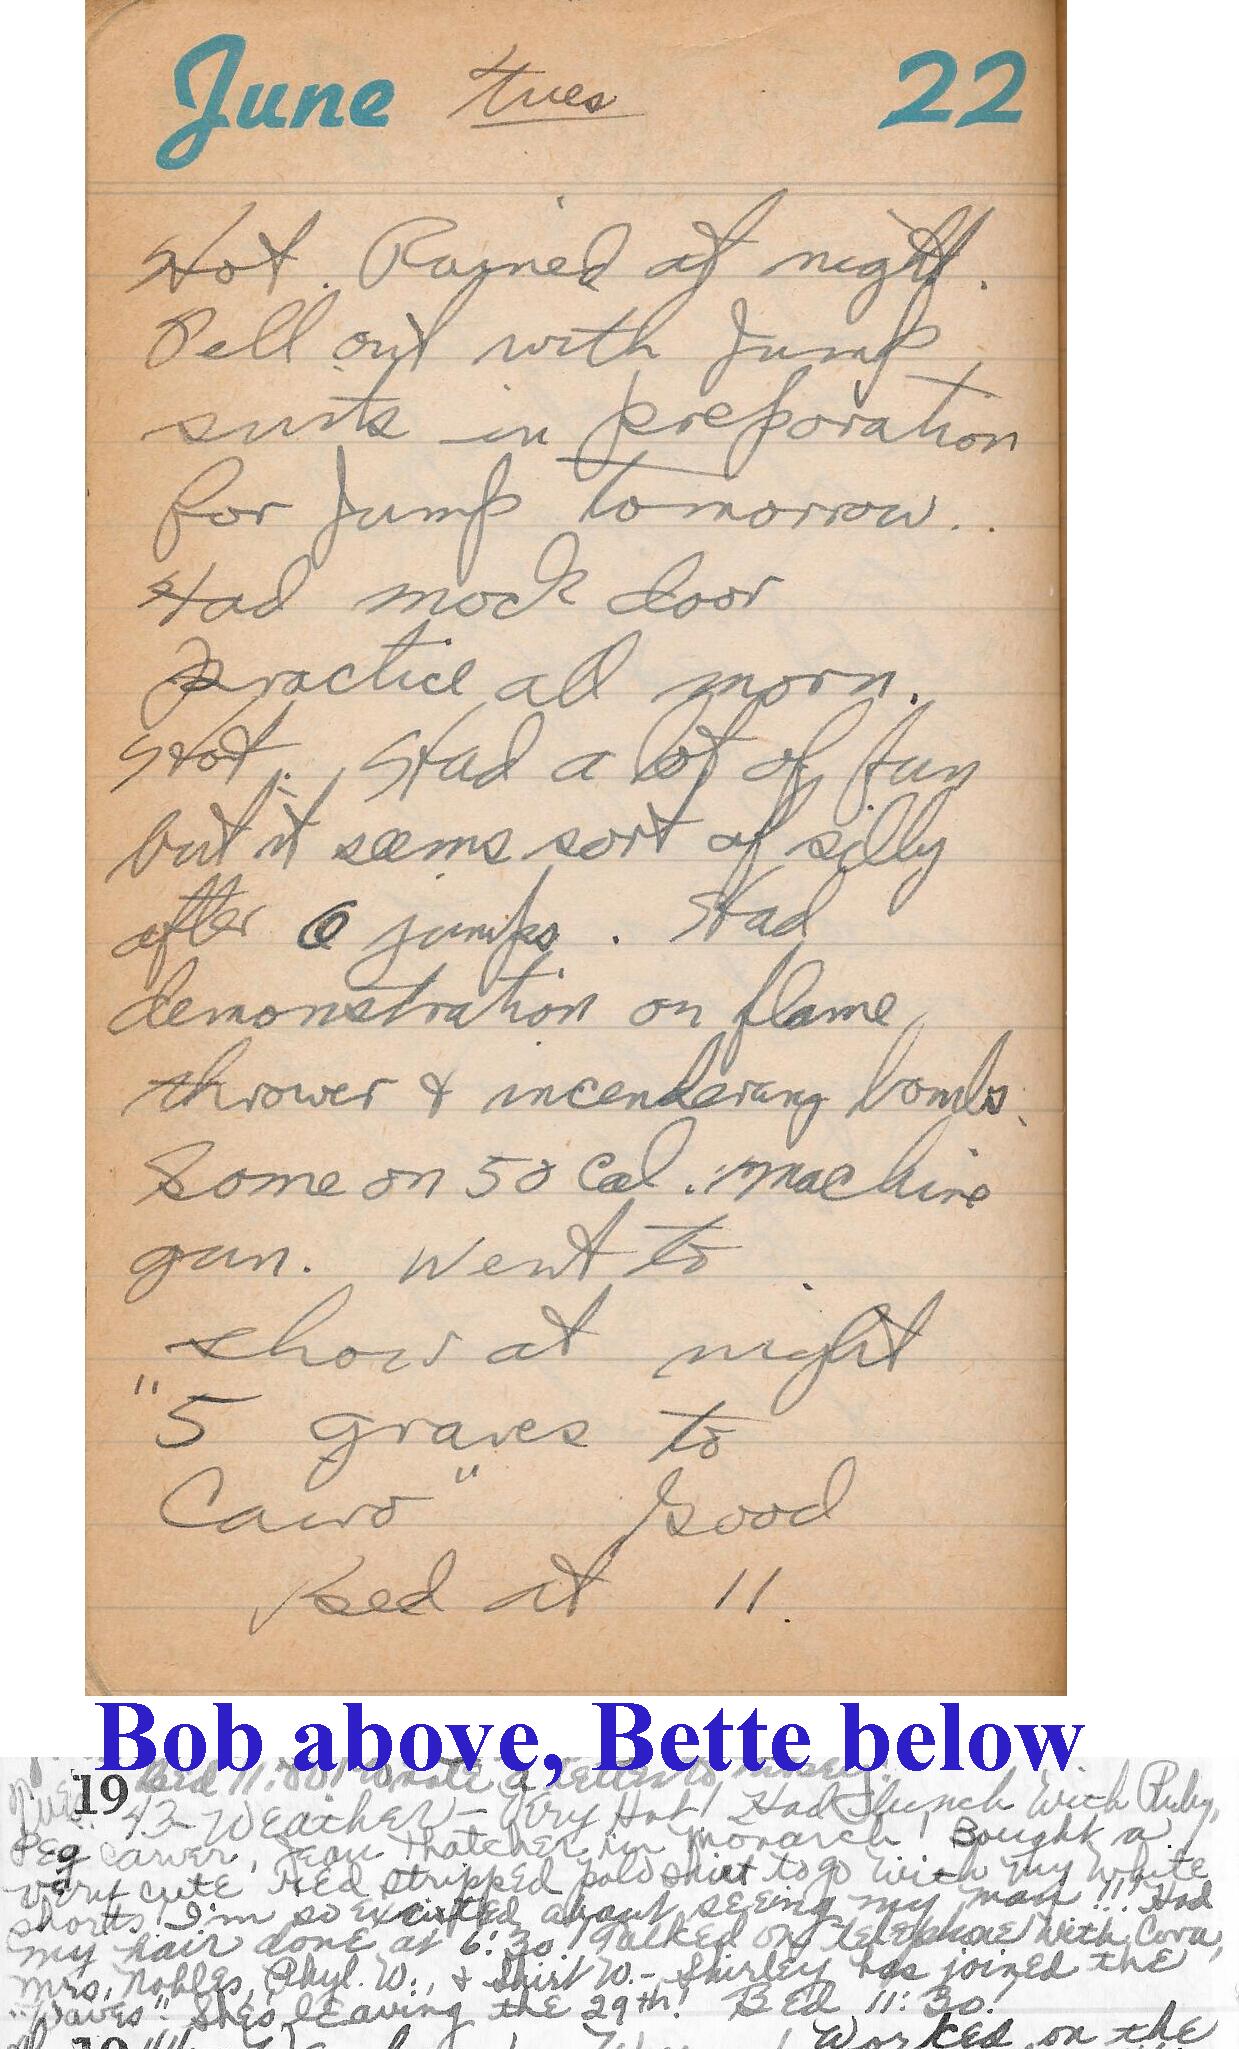 June Tues 22
Hot. Rained at night.
Fell out with Jump
suits in preparation
for Jump tomorrow..
Had mock door
practice all morn.
Hot. Had a lot of fun
but it seems sort of silly
after 6 jumps. Had
demonstration on flame
thrower & incenderang bombs.
Some on 50 Cal. machine
gun. Went to
show at night
"5 graves to
Cairo" Good
Bed at 11.
Bob above, Bette below
Bed 11:00! Wrote a letter to
Tues. 19 43- Weather - Very Hot! Had lunch with Ruby,
Peg Carver, Jean Thatcher, in Monarch! Bought a
very cute Red stripped polo shirt to go with my white
shorts! I'm so excited about seeing my man!!! Had
my hair done at 6:30! Talked on telephone with Cora,
Mrs. Nobles, Phyl. W., & Shirl W. - Shirley has joined the
"Waves". She's leaving the 29th! Bed 11:30!
19 Worked on the